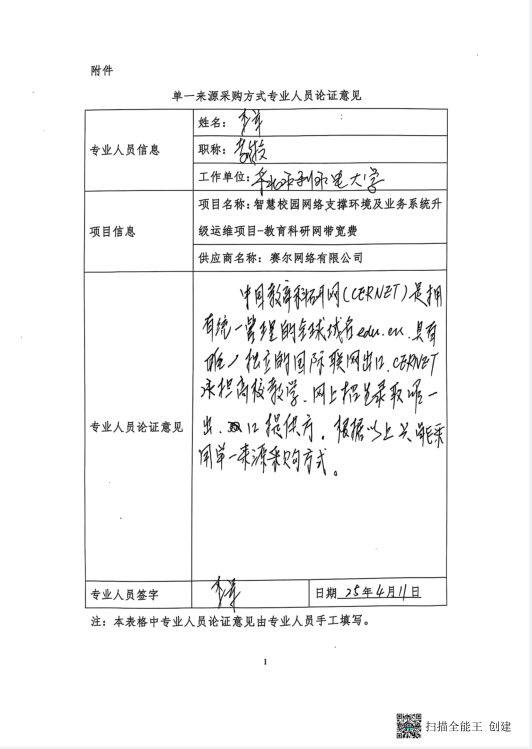 附件
单一来源采购方式专业人员论证意见
专业人员信息
姓名：李
职称：教授
工作单位：华北水利水电大学
项目信息
项目名称：智慧校园网络支撑环境及业务系统升
级运维项目-教育科研网带宽费
供应商名称：赛尔网络有限公司
专业人员论证意见
中国教育科研网(CERNET)是拥
有统一管理的全球域名edu.cn.具有
唯一独立的国际联网出口.CERNET
承担高校教学、网上招生录取唯一
出、口提供方。根据以上只能采
用单一来源采购方式。
专业人员签字
李
日期 25年4月11日
注：本表格中专业人员论证意见由专业人员手工填写。
1
扫描全能王 创建